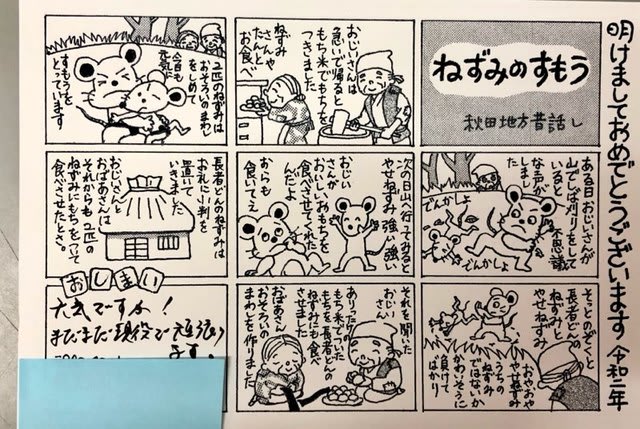 明けましておめでとうございます 令和二年
ねずみのすもう
秋田地方昔話し
ある日おじいさんが
山でしば刈りをして
いると不思議
な声が
しまし
た
でんかしょ
でんかしょ
そっとのぞくと
長者どんの
ねずみと
やせねずみ
おやおや
やせねずみは
うちの
ねずみ
ではないか
かわいそうに
負けて
ばかり
おじいさんは
急いで帰ると
もち米でもちを
つきました
ねずみ
さんや
たんと
お食べ
次の日山へ行ってみると
やせねずみ強い強い
おじい
さんが
おいしいおもちを
食べさせてくれた
んだよ
おらも
食いてえ
それを聞いた
おじい
さん
ありったけの
もち米でついた
もちを長者どんの
ねずみにも食べ
させました
おばあさんは
おそろいの
まわしを作りました
2匹のねずみは
おそろいのまわし
をしめて
今日も
元気に
すもうを
とっています
長者どんのねずみは
お礼に小判を
置いて
いきました
おじいさんと
おばあさんは
それからも2匹の
ねずみにもちをついて
食べさせたとさ。
おしまい
元気ですか！
まだまだ現役で頑張り
ます。